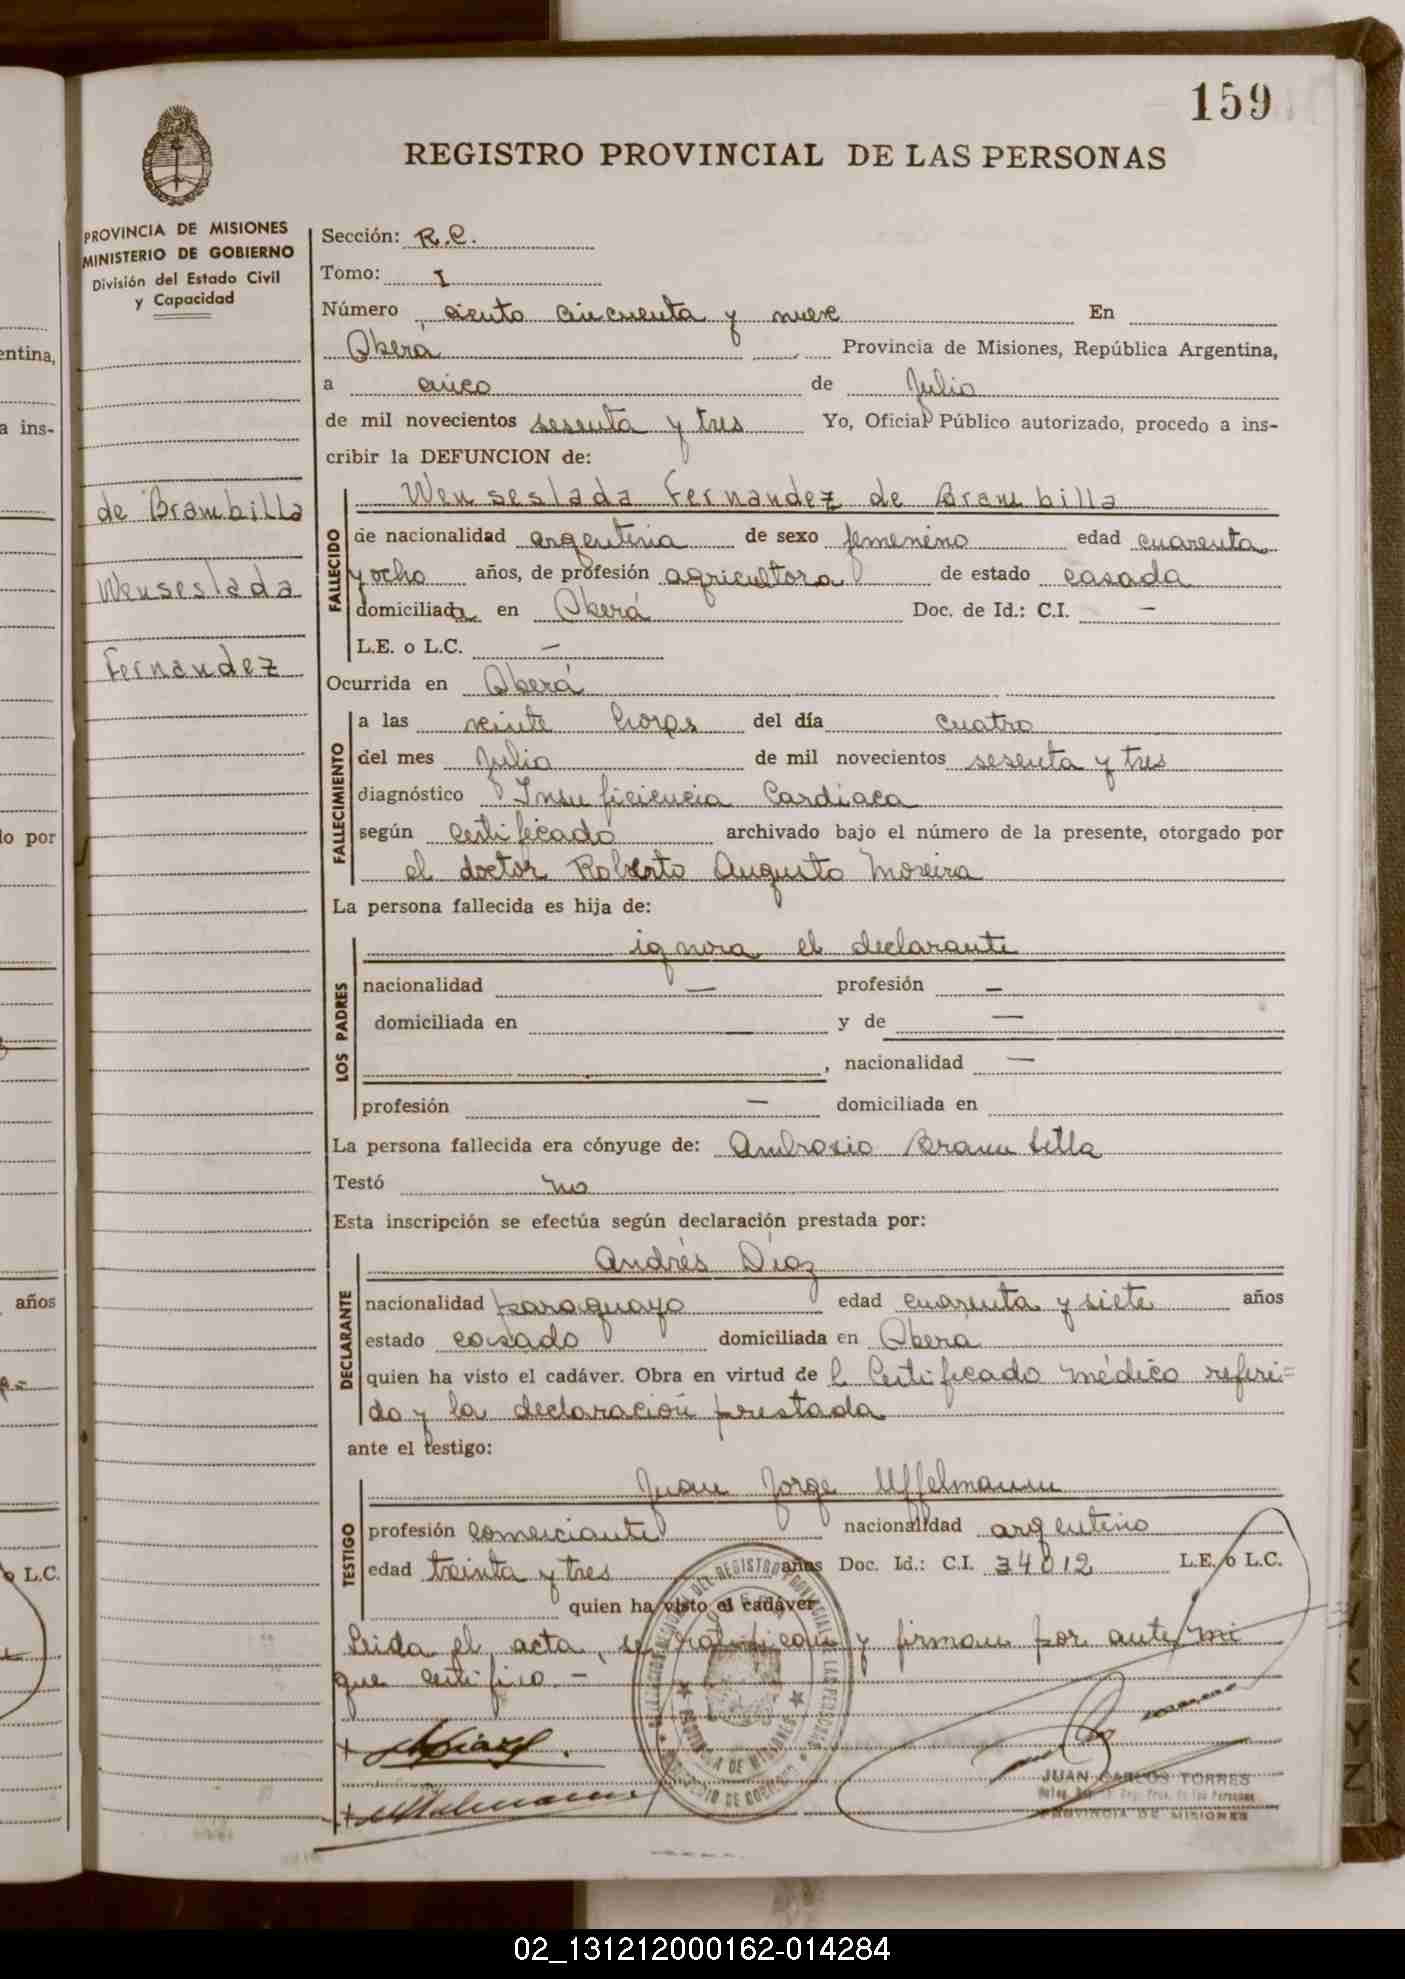 159
REGISTRO PROVINCIAL DE LAS PERSONAS
PROVINCIA DE MISIONES
MINISTERIO DE GOBIERNO
División del Estado Civil
y Capacidad
de Brambilla
Wenseslada
Fernandez
Sección: R.C.
Tomo: I
Número ciento cincuenta y nueve En
Oberá Provincia de Misiones, República Argentina,
a cinco de Julio
de mil novecientos sesenta y tres Yo, Oficial Público autorizado, procedo a ins-
cribir la DEFUNCION de:
FALLECIDO
Wenseslada Fernandez de Brambilla
de nacionalidad argentina de sexo femenino edad cuarenta
y ocho años, de profesión agricultora de estado casada
domiciliada en Oberá Doc. de Id.: C.I. —
L.E. o L.C. —
Ocurrida en Oberá
FALLECIMIENTO
a las veinte horas del día cuatro
del mes Julio de mil novecientos sesenta y tres
diagnóstico Insuficiencia Cardiaca
según certificado archivado bajo el número de la presente, otorgado por
el doctor Roberto Augusto Moreira
La persona fallecida es hija de:
LOS PADRES
ignora el declarante
nacionalidad — profesión —
domiciliada en — y de —
, nacionalidad —
profesión — domiciliada en
La persona fallecida era cónyuge de: Ambrosio Brambilla
Testó no
Esta inscripción se efectúa según declaración prestada por:
DECLARANTE
Andrés Díaz
nacionalidad paraguayo edad cuarenta y siete años
estado casado domiciliada en Oberá
quien ha visto el cadáver. Obra en virtud de l Certificado médico referi=
do y la declaración prestada
ante el testigo:
TESTIGO
Juan Jorge Uffelmann
profesión comerciante nacionalidad argentino
edad treinta y tres años Doc. Id.: C.I. 34012 L.E. o L.C.
quien ha visto el cadáver
Leida el acta, se ratifican y firman por ante mi
que certifico. —
JUAN CARLOS TORRES
PROVINCIA DE MISIONES
entina,
a ins-
lo por
años
o L.C.
K
Y
Z
02_131212000162-014284